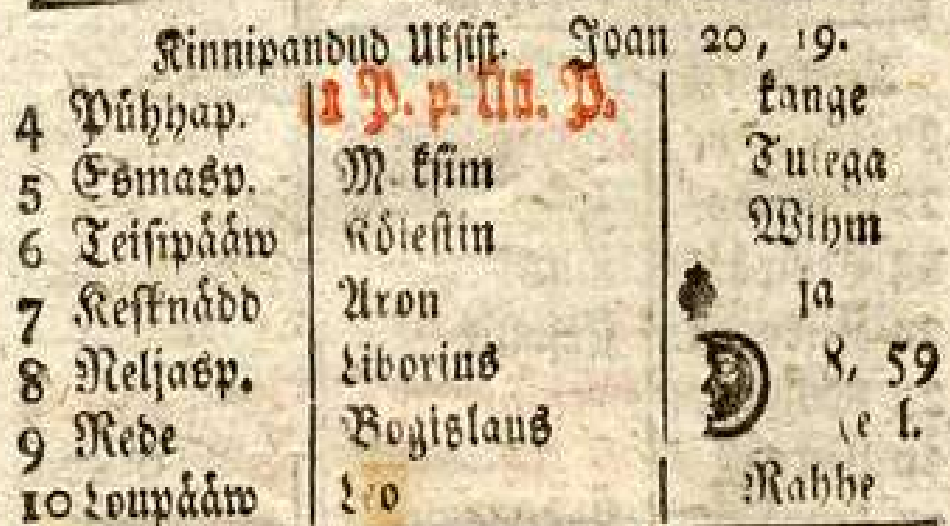 Kinnipandud Uksist. Joan 20, 19.
4 Pühhap. 1 P. p. P. kange
5 Esmasp. Tulega
6 Teisipääw Kölestin Wihm
7 Kesknädd Aron ja
8 Neljasp. Liborius 59
9 Rede Bogislaus l.
10 Loupääw Leo Rahhe